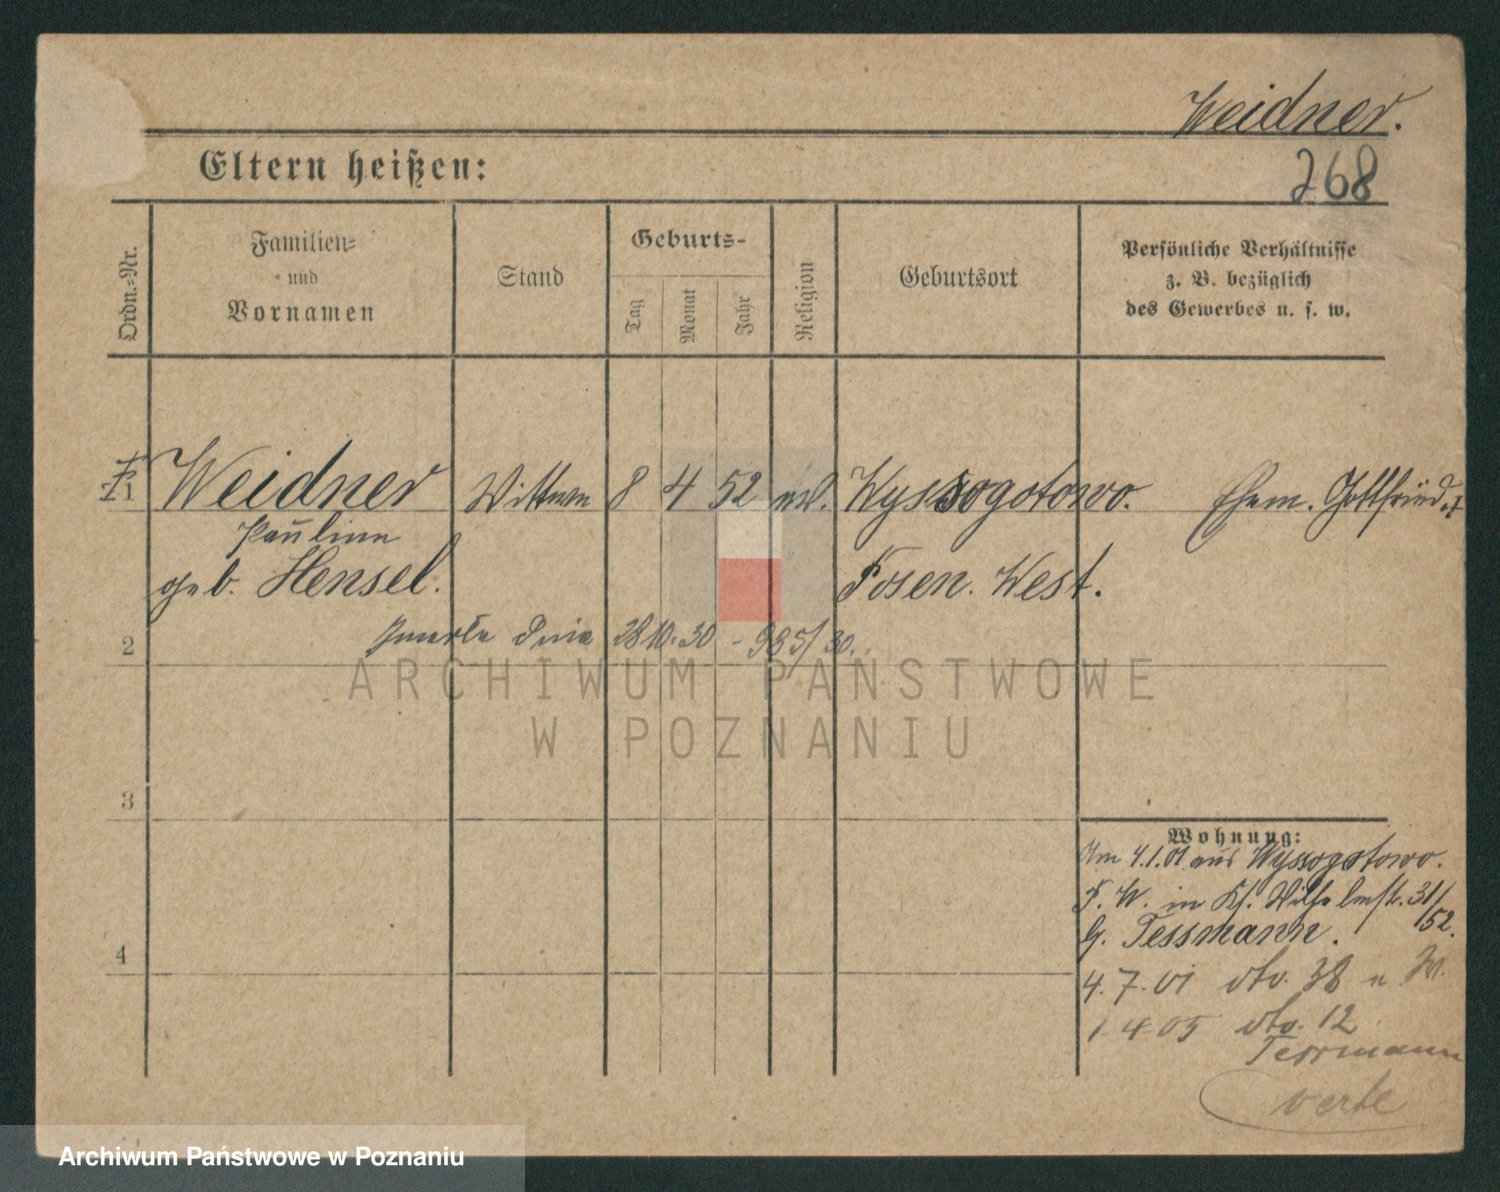 Weidner.
268
Eltern heißen:
Ordn.-Nr.
Familien-
und
Vornamen
Stand
Geburts-
Tag
Monat
Jahr
Religion
Geburtsort
Persönliche Verhältnisse
z. B. bezüglich
des Gewerbes u. s. w.
1 Weidner Wittwe 8 4 52 ev. Wyssogotowo. Ehem. Gottfried †
Pauline
geb. Hensel. Posen. West.
2 zmarła dnia 28 10. 30 - 985/30.
ARCHIWUM PAŃSTWOWE
W POZNANIU
3
Wohnung:
Am 4.1.01 aus Wyssogotowo.
P. W. in Kl. Wilhelmstr. 31/
/52.
b. Tessmann.
4
4.7.01 dto. 38 u. W.
1 4 05 dto. 12
Tessmann
verte
Archiwum Państwowe w Poznaniu